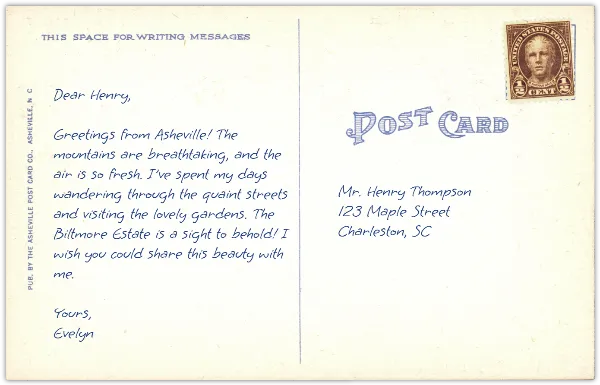 THIS SPACE FOR WRITING MESSAGES
PUB. BY THE ASHEVILLE POST CARD CO., ASHEVILLE, N C
Dear Henry,
Greetings from Asheville! The
mountains are breathtaking, and the
air is so fresh. I've spent my days
wandering through the quaint streets
and visiting the lovely gardens. The
Biltmore Estate is a sight to behold! I
wish you could share this beauty with
me.
Yours,
Evelyn
UNITED STATES POSTAGE
1/2 CENT 1/2
POST CARD
Mr. Henry Thompson
123 Maple Street
Charleston, SC